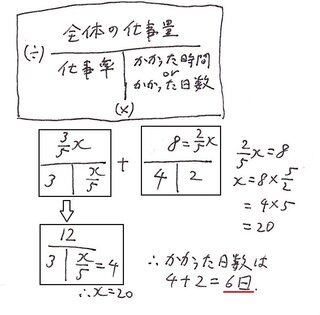 全体の仕事量
(÷)
仕事率
かかった時間
or
かかった日数
(×)
3/5 x
3
x/5
+
8=2/5 x
4
2
2/5 x=8
x=8×5/2
=4×5
=20
12
3
x/5=4
∴x=20
∴かかった日数は
4+2=6日.